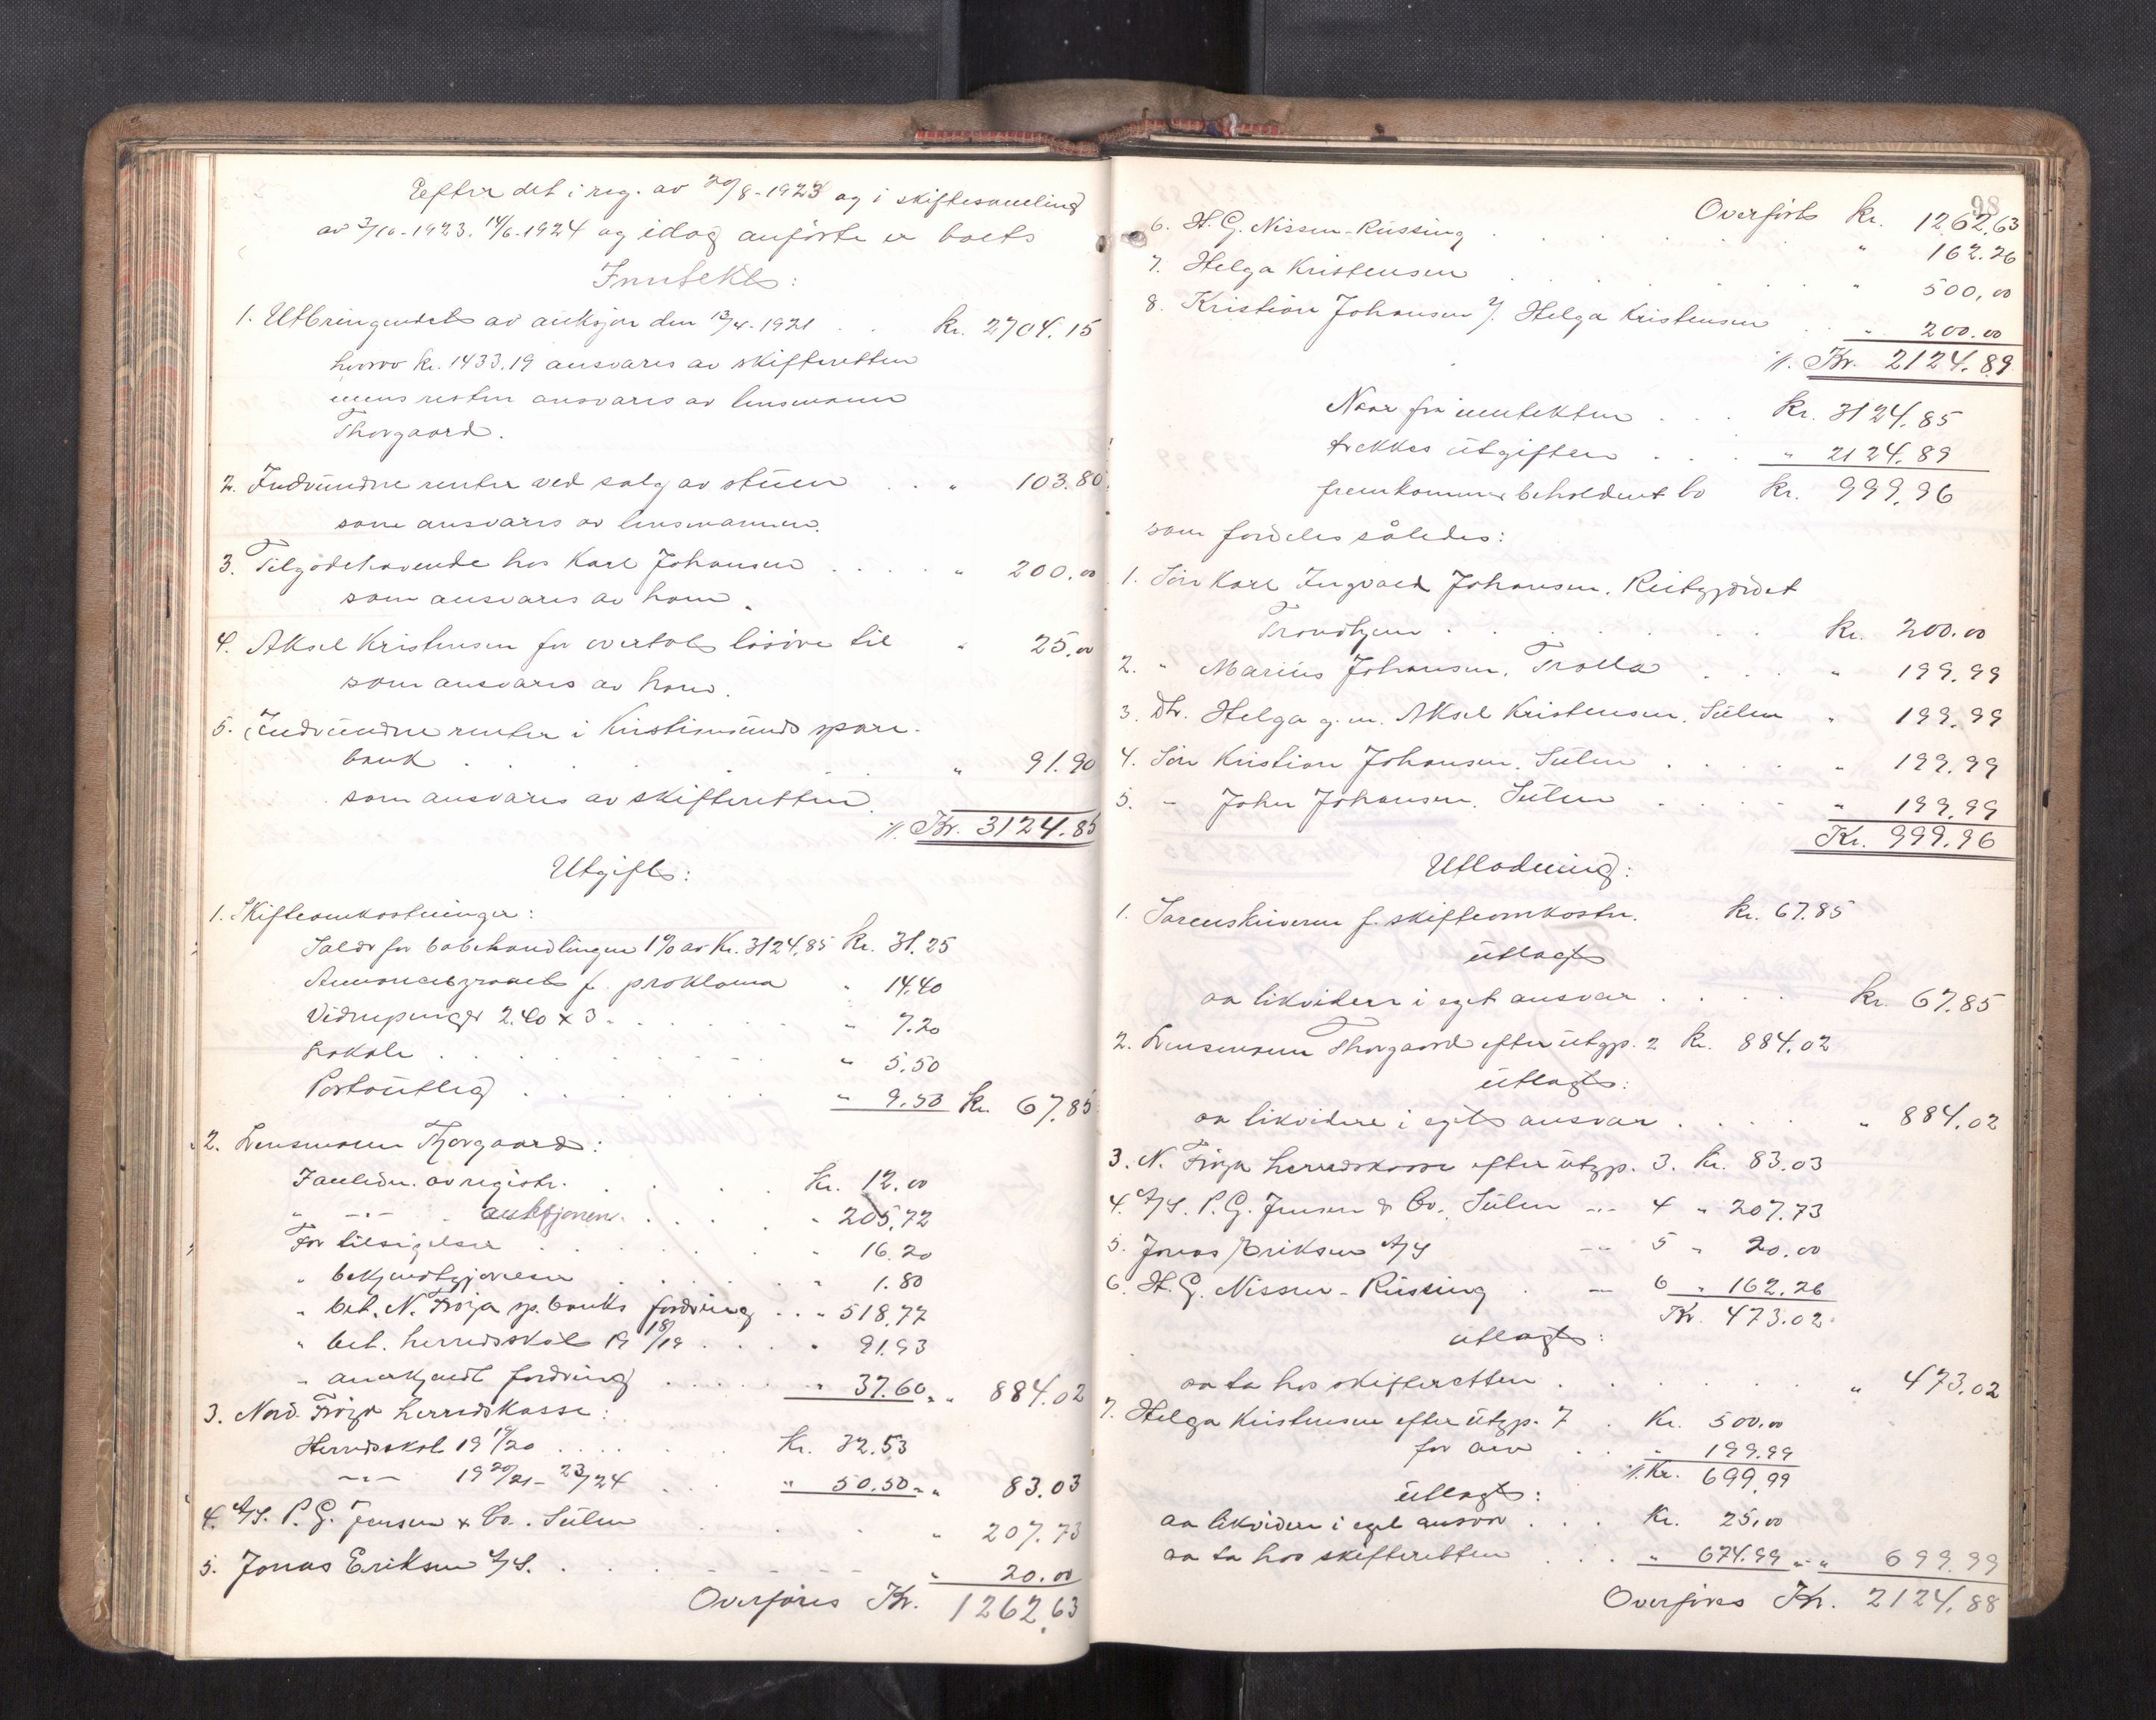 Efter det i reg. av 20/8-1923 og i skiftesamling
av 2/10-1923. 14/6-1924 og idag anförte er boets
Inntekt:
1. Utbringendet av auksjon den 13/4-1921 . . kr. 2704.15
hvorav kr. 1433.19 ansvares av skifteretten
mens resten ansvares av lensmann
Thorgaard.
2. Indvundne renter ved salg av stuen . . " 103.80
som ansvares av lensmannen.
3. Tilgodehavende hos Karl Johansen . . . . " 200.00
som ansvares av ham.
4. Aksel Kristensen for overtat lösöre til " 25.00
som ansvares av ham.
5. Indvundne renter i Kristiansunds spare-
bank . . . . . " 91.90
som ansvares av skifteretten.
://. Kr. 3124.85
Utgift:
1. Skifteomkostninger:
Salær for bobehandlingen 1% av Kr. 3124.85 kr. 31.25
f. proklama " 14.40
Vidnepenger 2.40 x 3 . . . . . " 7.20
Lokale . . . . . . . " 5.50
Portoutlæg . . . . . . " 9.50 kr. 67.85
2. Lensmann Thorgaard:
Forledn. av registr. . . . . kr. 12.00
" -"- . auksjonen . . . . " 205.72
For tilsigelser . . . . . " 16.20
" bekjendtgjörelser . . . . . " 1.80
" bet. N. Fröya sp.banks fordring . . " 518.77
" bet. herredsskat 19 18/19 . . . . " 91.93
" anerkjendt fordring . . . . . " 37.60 " " 884.02
3. Nord-Fröya herredskasse:
Herredsskat 19 19/20 . . . . . kr. 32.53
-"- 19 20/21 - 23/24 . . . " 50.50 " " 83.03
4. A/S. P. G. Jensen & Co. Sulen . . . . " 207.73
5. Jonas Eriksen A/S. . . . . . . " 20.00
Overföres Kr. 1262.63
98
Overfört kr. 1262.63
6. H. G. Nissen-Russing . . . . . . " 162.26
7. Helga Kristensen . . . . . . . " 500.00
8. Kristian Johansen v/ Helga Kristensen . . " 200.00
://. Kr. 2124.89
Naar fra inntekten . . . kr. 3124.85
trekkes utgiften . . . " 2124.89
fremkommer beholdent bo kr. 999.96
som fordeles således:
1. Sön Karl Ingvald Johansen.
Trondhjem . . . . . . . kr. 200.00
2. " Marius Johansen, Trolla . . . . " 199.99
3. Dtr. Helga g.m. Aksel Kristensen. Sulen " 199.99
4. Sön Kristian Johansen. Sulen . . . . " 199.99
5. " John Johansen. Sulen . . . . . " 199.99
Kr. 999.96
Utlodning:
1. Sorenskriveren f. skifteomkostn. kr. 67.85
utlagt
aa likvidere i eget ansvar . . . . kr. 67.85
2. Lensmann Thorgaard efter utgp. 2 kr. 884.02
utlagt:
aa likvidere i eget ansvar . . . . " 884.02
3. N. Fröya herredskasse efter utgp. 3. kr. 83.03
4. A/S. P. G. Jensen & Co., Sulen -"- 4 " 207.73
5. Jonas Eriksen A/S -"- 5 " 20.00
6. H. G. Nissen-Russing . -"- 6 " 162.26
Kr. 473.02
utlagt:
aa ta hos skifteretten . . . . . . " 473.02
7. Helga Kristensen efter utgp. 7 . Kr. 500.00
for arv . . " 199.99
://. Kr. 699.99
utlagt:
aa likvidere i eget ansvar . . . Kr. 25.00
aa ta hos skifteretten . . . " 674.99 " " 699.99
Overföres Kr. 2124.88